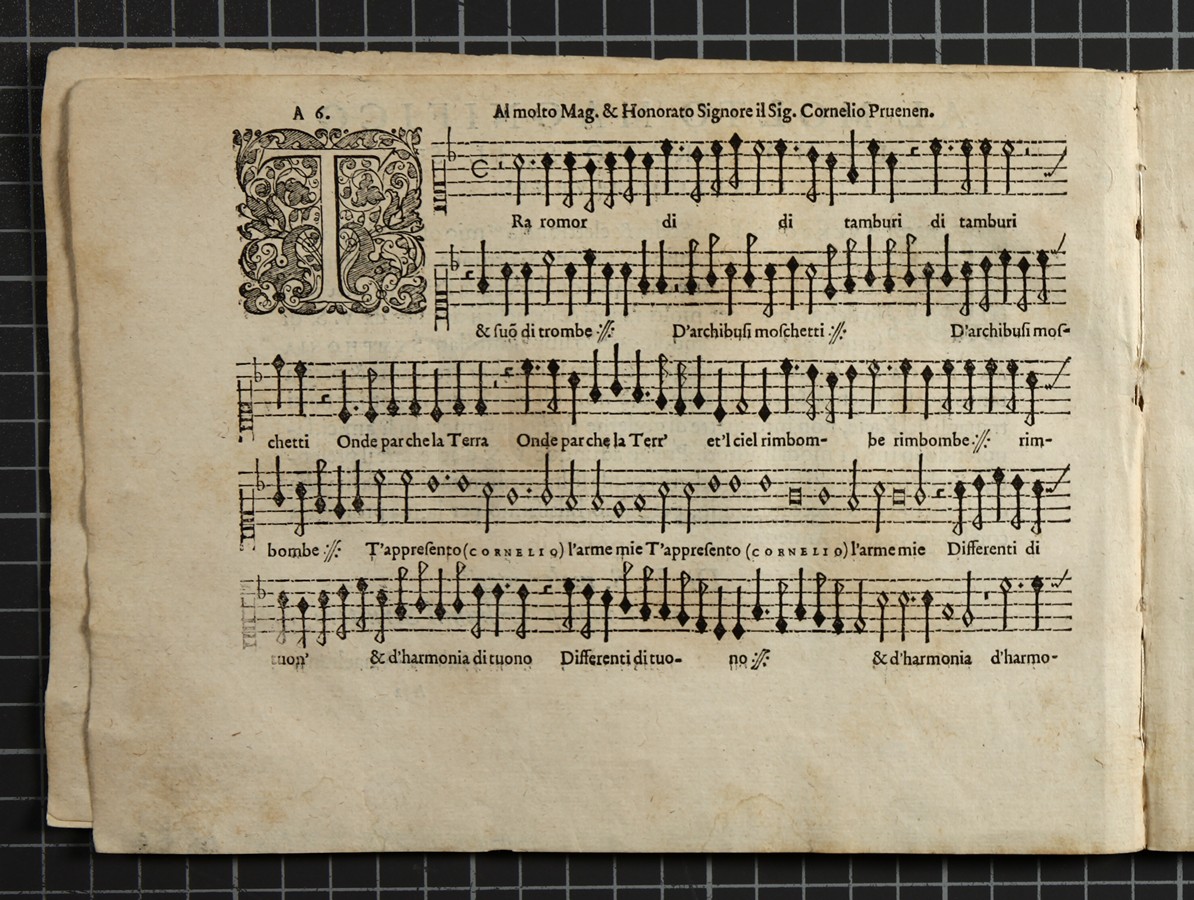 A 6. Al molto Mag. & Honorato Signore il Sig. Cornelio Pruenen.
TRa romor di di tamburi di tamburi
& suõ di trombe :||: D'archibusi moschetti :||: D'archibusi mos-
chetti Onde par che la Terra Onde par che la Terr' et'l ciel rimbom- be rimbombe :||: rim-
bombe :||: T'appresento (CORNELIO) l'arme mie T'appresento (CORNELIO) l'arme mie Differenti di
tuon' & d'harmonia di tuono Differenti di tuo- no :||: & d'harmonia d'harmo-